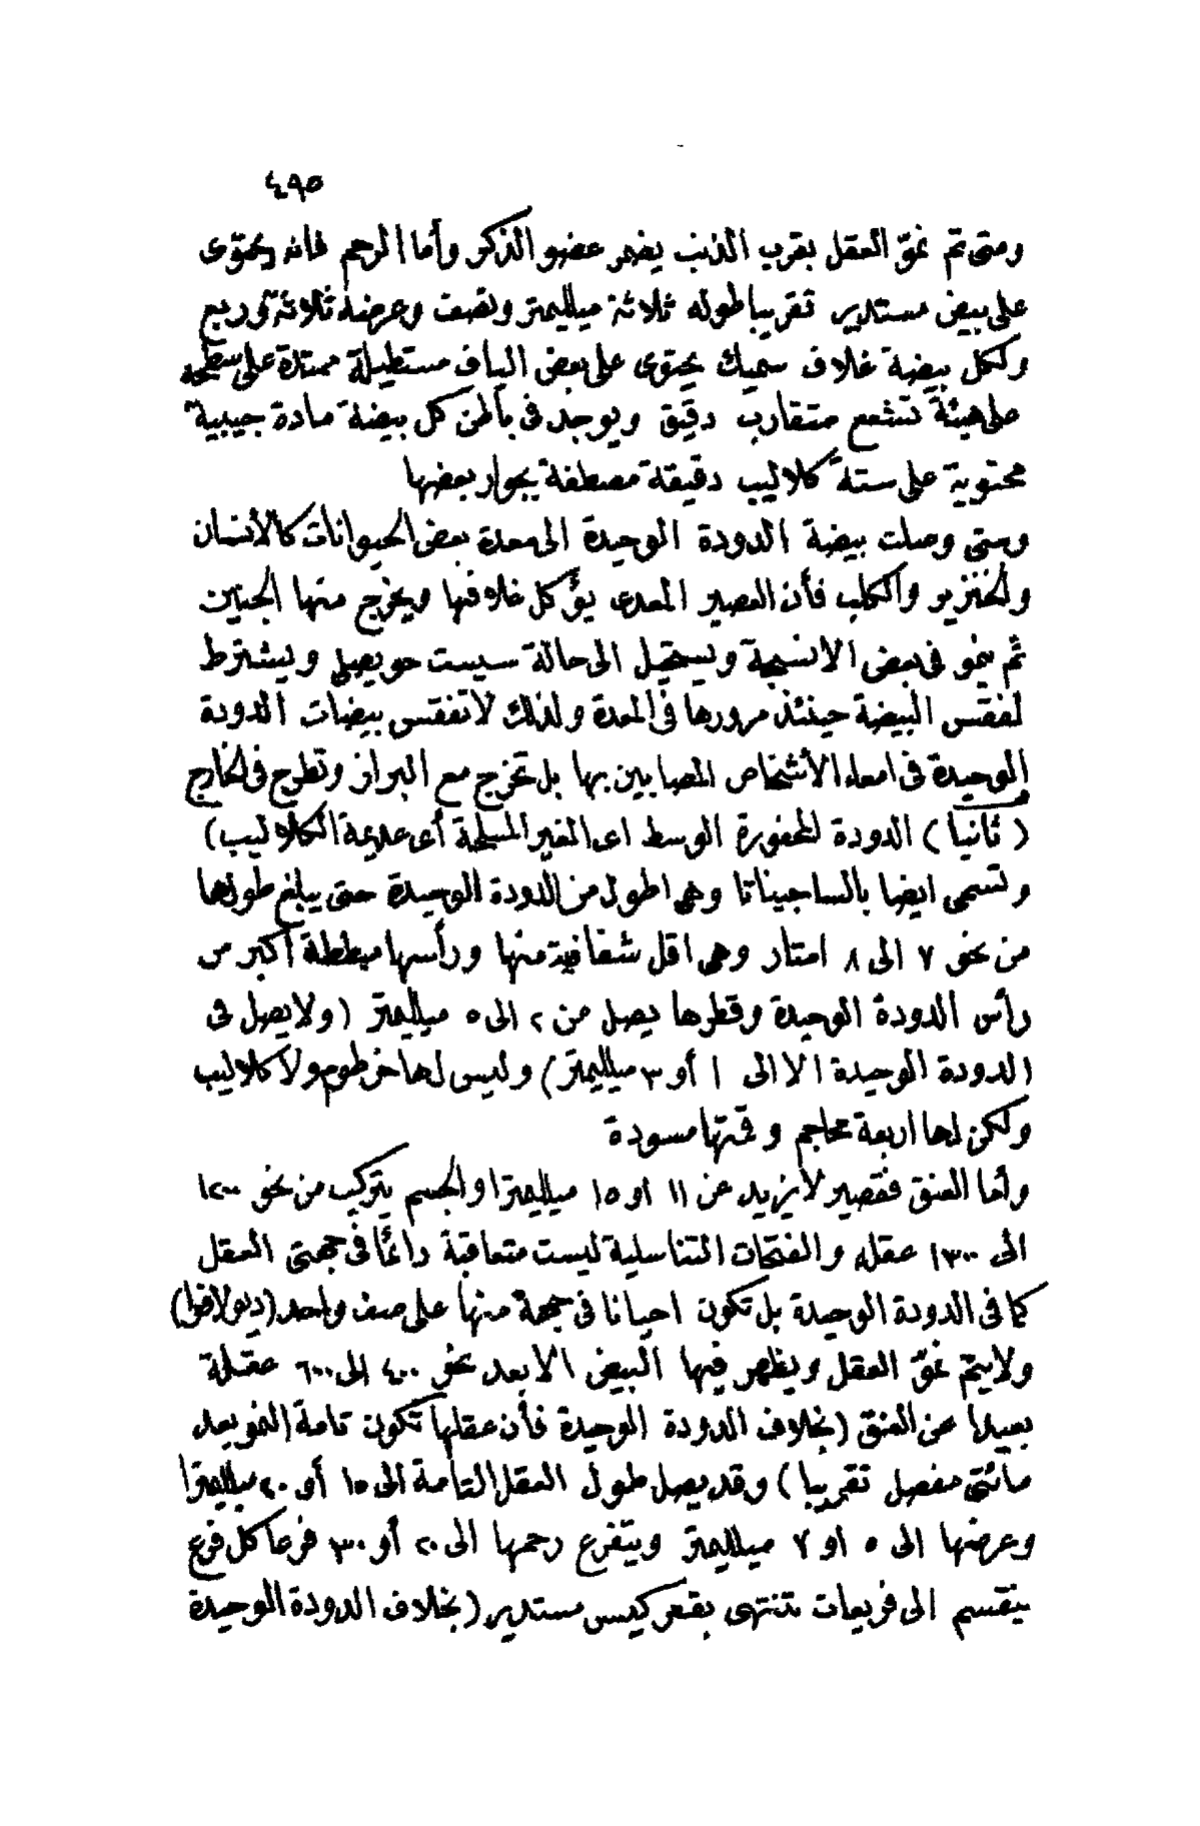 ٤٩٥
ومتى تم نموّ العقل بقرب الذنب يضمر عضو الذكر وأما الرحم فانه يحتوى
على بيض مستدير تقريبا طوله ثلاثة ميلليمتر ونصف وعرضه ثلاثة وربع
ولكل بيضة غلاف سميك يحتوى على بعض الياف مستطيلة ممتدة على سطحه
على هيئة تشعع متقارب دقيق ويوجد فى باطن كل بيضة مادة جيبية
محتوية على ستة كلاليب دقيقة مصطفة بجوار بعضها
ومتى وصلت بيضة الدودة الوحيدة الى معدة بعض الحيوانات كالأنسان
والخنزير والكلب فأن العصير المعدى يؤكل غلافها ويخرج منها الجنين
ثم ينمو فى بعض الانسجة ويستحيل الى حالة سيست حويصلى ويشترط
لفقس البيضة حينئذ مرورها فى المعدة ولذلك لاتفقس بيضات الدودة
الوحيدة فى امعاء الأشخاص المصابين بها بل تخرج مع البراز وتطرح فى الخارج
(ثانيا) الدودة المحفورة الوسط اى الغير المسلحة أى عديمة الكلاليب)
وتسمى ايضا بالساجيناتا وهى اطول من الدودة الوحيدة حتى يبلغ طولها
من نحو ٧ الى ٨ امتار وهى اقل شفافية منها ورأسها مبططة أكبر من
رأس الدودة الوحيدة وقطرها يصل من ٢ الى ٥ ميلليمتر (ولا يصل فى
الدودة الوحيدة الا الى ١ أو ٣ ميلليمتر) وليس لها خرطوم ولا كلاليب
ولكن لها اربعة محاجم وقمتها مسودة
وأما العنق فقصير لايزيد عن ١١ او ١٥ ميلليمترا والجسم يتركب من نحو ١٢٠٠
الى ١٣٠٠ عقله والفتحات التناسلية ليست متعاقبة دائما فى جهتى العقل
كما فى الدودة الوحيدة بل تكون احيانا فى جهة منها على صف واحد (ديولافوا)
ولايتم نموّ العقل ويظهر فيها البيض الا بعد نحو ٤٠٠ الى ٦٠٠ عقلة
بعيدا عن العنق (بخلاف الدودة الوحيدة فأن عقلها تكون تامة النمو بعد
مائتى مفصل تقريبا) وقد يصل طول العقل التامة الى ١٥ أو ٢٠ ميلليمترا
وعرضها الى ٥ او ٧ ميلليمتر ويتفرع رحمها الى ٢٠ أو ٣٠ فرعا كل فرع
ينقسم الى فريعات تنتهى بقعر كيس مستدير (بخلاف الدودة الوحيدة